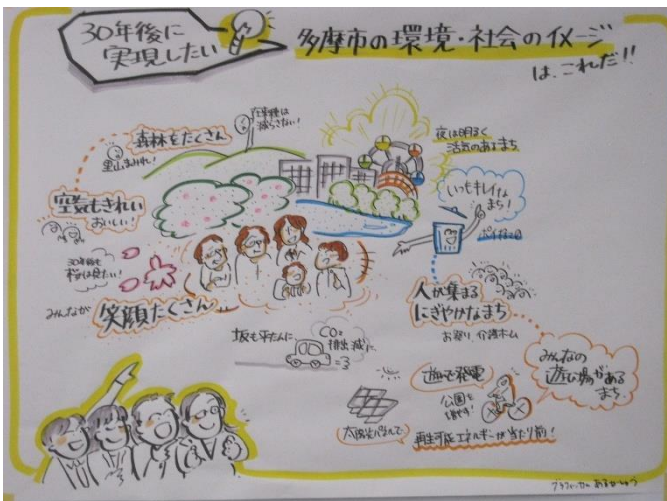 30年後に
実現したい
多摩市の環境・社会のイメージ
は、これだ!!
森林をたくさん
里山まみれ!
在来種は
減らさない!
夜は明るく
活気のあるまち
空気もきれい
おいしい!
いつもキレイな
まち!
ポイ捨て0
30年後も
桜は見たい!
みんなが
笑顔たくさん
人が集まる
にぎやかなまち
お祭り 介護ホーム
坂も平たんに
CO2
排出減に
みんなの
遊び場がある
まち
遊で発電
公園を
増やす!
太陽光パネルで
再生可能エネルギーが当たり前!